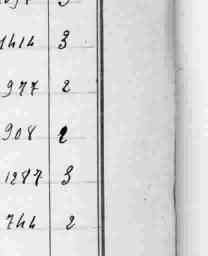 1414 3
977 2
908 2
1287 3
744 2